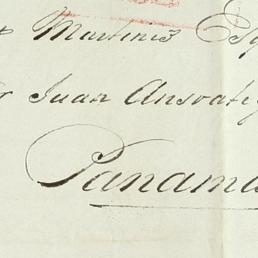 Martinez Esq
Juan Ansoateg
Panama